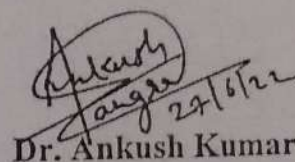 Ankush
Jangra
27/6/22
Dr. Ankush Kumar